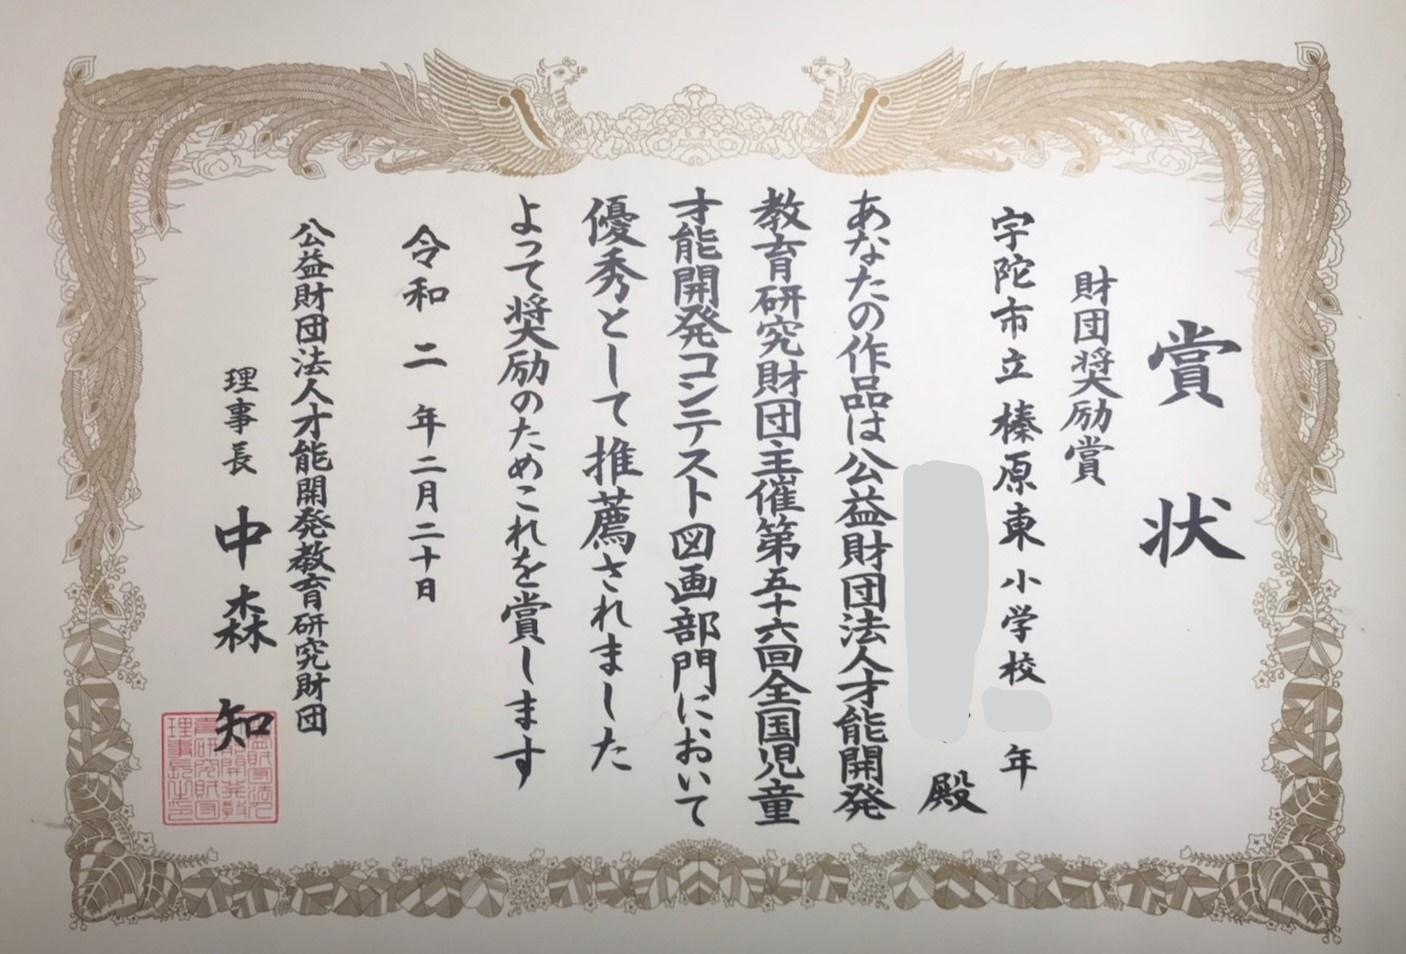 賞状
財団奨励賞
宇陀市立榛原東小学校 年
殿
あなたの作品は公益財団法人才能開発
教育研究財団主催第五十六回全国児童
才能開発コンテスト図画部門において
優秀として推薦されました
よって奨励のためこれを賞します
令和二年二月二十日
公益財団法人才能開発教育研究財団
理事長 中森 知